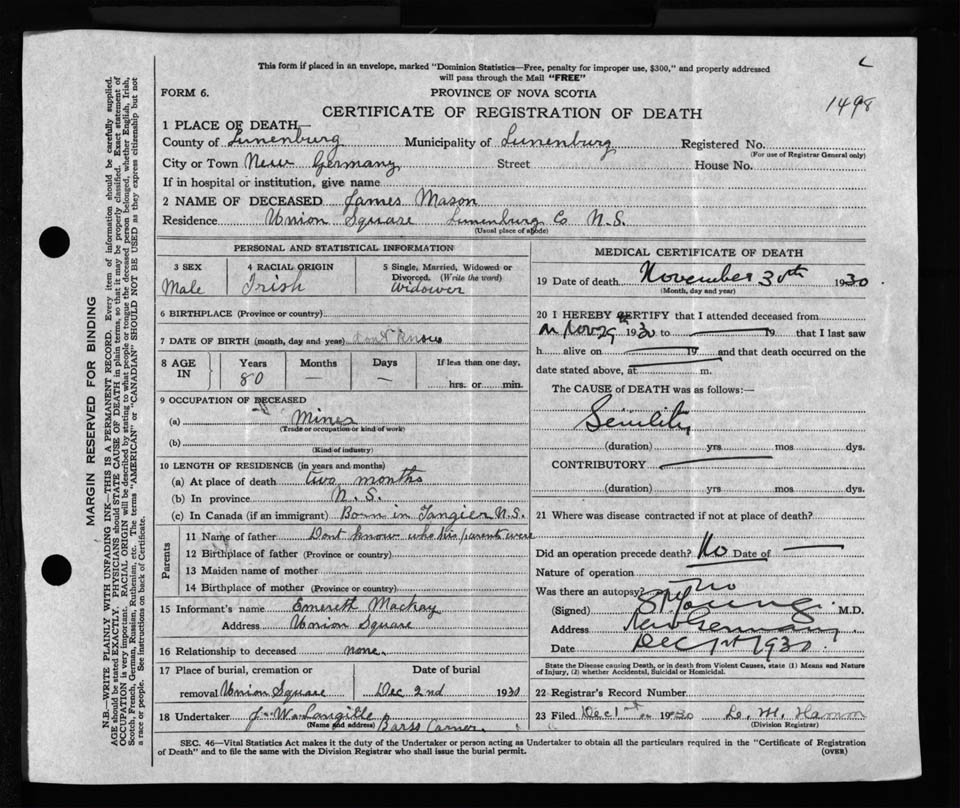 This form if placed in an envelope, marked "Dominion Statistics—Free, penalty for improper use, $300," and properly addressed
will pass through the Mail "FREE"
FORM 6.
PROVINCE OF NOVA SCOTIA
1498
CERTIFICATE OF REGISTRATION OF DEATH
1 PLACE OF DEATH—
County of Lunenburg Municipality of Lunenburg Registered No.
(For use of Registrar General only)
City or Town New Germany Street House No.
If in hospital or institution, give name
2 NAME OF DECEASED James Mason
Residence Union Square Lunenburg Co N.S.
(Usual place of abode)
MARGIN RESERVED FOR BINDING
N.B.—WRITE PLAINLY WITH UNFADING INK—THIS IS A PERMANENT RECORD. Every item of information should be carefully supplied.
AGE should be stated EXACTLY. PHYSICIANS should STATE CAUSE OF DEATH in plain terms, so that it may be properly classified. Exact statement of
OCCUPATION is very important. RACIAL ORIGIN will be described by stating to what people or tongue the deceased person belonged, whether English, Irish,
Scotch, French, German, Russian, Ruthenian, etc. The terms "AMERICAN" or "CANADIAN" SHOULD NOT BE USED as they express citizenship but not
a race or people. See instructions on back of Certificate.
PERSONAL AND STATISTICAL INFORMATION
3 SEX
Male
4 RACIAL ORIGIN
Irish
5 Single, Married, Widowed or
Divorced. (Write the word)
Widower
6 BIRTHPLACE (Province or country)
7 DATE OF BIRTH (month, day and year) dont know
8 AGE
IN
Years
80
Months
—
Days
—
If less than one day
hrs. or min.
9 OCCUPATION OF DECEASED
(a) Miner
(Trade or occupation or kind of work)
(b)
(Kind of industry)
10 LENGTH OF RESIDENCE (in years and months)
(a) At place of death two months
(b) In province N.S.
(c) In Canada (if an immigrant) Born in Tangier N.S.
Parents
11 Name of father Dont know who his parents were
12 Birthplace of father (Province or country)
13 Maiden name of mother
14 Birthplace of mother (Province or country)
15 Informant's name Mackay
Address Union Square
16 Relationship to deceased none.
17 Place of burial, cremation or Date of burial
removal Union Square Dec 2nd 1930
18 Undertaker J. W. Langille
(Name and address) Barss Corner
MEDICAL CERTIFICATE OF DEATH
19 Date of death November 30th 1930
(Month, day and year)
20 I HEREBY CERTIFY that I attended deceased from
on Nov 29 1930 to 19 that I last saw
h alive on 19 and that death occurred on the
date stated above, at m.
The CAUSE of DEATH was as follows:—
Senility
(duration) yrs mos dys.
CONTRIBUTORY
(duration) yrs. mos. dys.
21 Where was disease contracted if not at place of death?
Did an operation precede death? No Date of —
Nature of operation
Was there an autopsy? no
(Signed) Young M.D.
Address New Germany
Date Dec 1st 1930
State the Disease causing Death, or in death from Violent Causes, state (1) Means and Nature
of Injury, (2) whether Accidental, Suicidal or Homicidal.
22 Registrar's Record Number
23 Filed Dec 1st 1930 L. M.
(Division Registrar)
SEC. 46—Vital Statistics Act makes it the duty of the Undertaker or person acting as Undertaker to obtain all the particulars required in the "Certificate of Registration
of Death" and to file the same with the Division Registrar who shall issue the burial permit. (OVER)